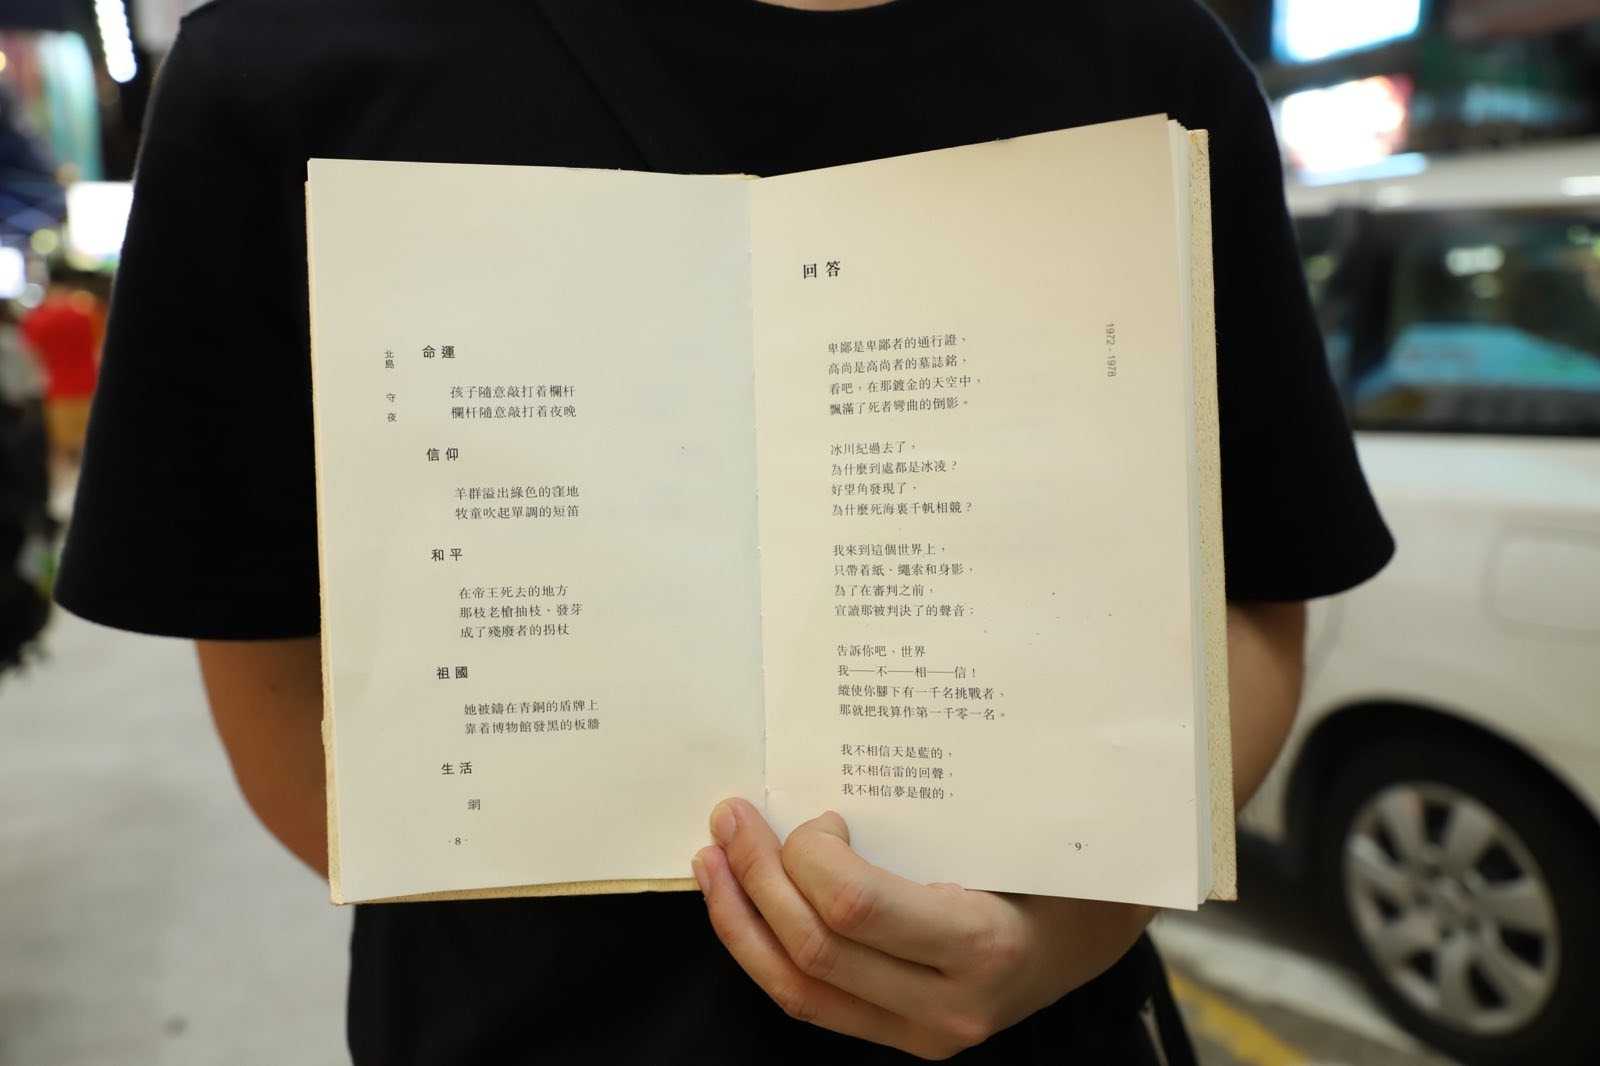 北島 守夜
命運
孩子隨意敲打着欄杆
欄杆隨意敲打着夜晚
信仰
羊群溢出綠色的窪地
牧童吹起單調的短笛
和平
在帝王死去的地方
那枝老槍抽枝、發芽
成了殘廢者的拐杖
祖國
她被鑄在青銅的盾牌上
靠着博物館發黑的板牆
生活
網
- 8 -
回答
1972 - 1978
卑鄙是卑鄙者的通行證,
高尚是高尚者的墓誌銘,
看吧,在那鍍金的天空中,
飄滿了死者彎曲的倒影。
冰川紀過去了,
為什麼到處都是冰凌?
好望角發現了,
為什麼死海裏千帆相競?
我來到這個世界上,
只帶着紙、繩索和身影,
為了在審判之前,
宣讀那被判決了的聲音:
告訴你吧、世界
我——不——相——信!
縱使你腳下有一千名挑戰者、
那就把我算作第一千零一名。
我不相信天是藍的,
我不相信雷的回聲,
我不相信夢是假的,
- 9 -